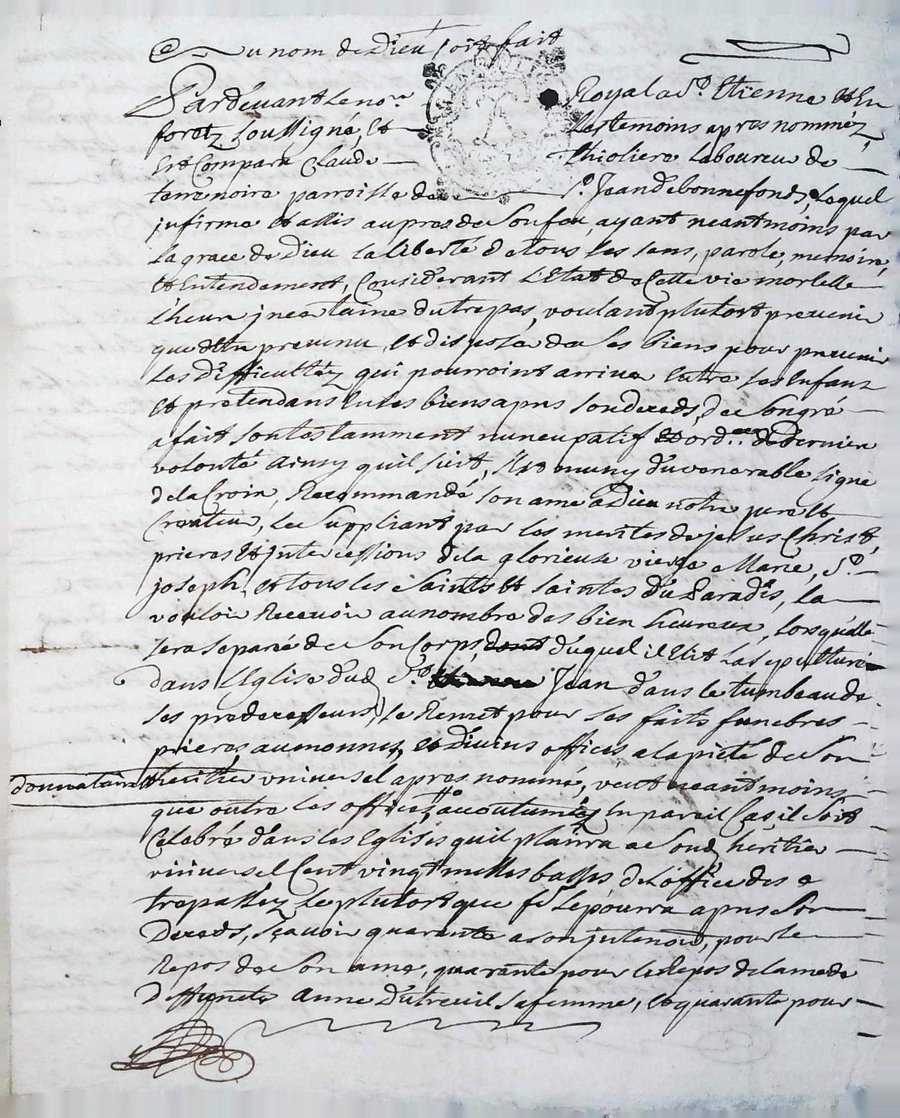 Au nom de Dieu soit fait
Pardevant le no.re Royal a s.t Etienne et En
foretz soussigné, Et Les temoins apres nommez
Est Comparu Claude thioliere Laboureur de
terrenoire paroisse de s.t Jean de bonnefonds, Lequel
jnfirme et assis aupres de son feu, ayant neantmoins par
La grace de Dieu la liberté de tous ses sens, parole, memoire,
et Entendement, Considerant L'Etat de Cette vie mortelle
L'heure jncertaine du trepas, voulant plutost prevenir
que d'En prevenu, et disposer de ses biens pour prevenir
Les Difficultez qui pourroint arriver Entre ses Enfans
Et pretendans En ses biens apres son deceds, de son gré
a fait son testamment nuncupatif et ord.ce de derniere
volonté Ainsy qu'il suit, s'Est muny du venerable signe
de la Croix, Recommandé son ame a Dieu notre pere Et
Createur, Le Suppliant par Les merites de jesus Christ,
prieres Et jntercessions de la glorieuse vierge Marie, s.t
joseph, et tous les Saints et saintes du Paradis, la
vouloir Recevoir au nombre des bien heureux, Lorsqu'elle
sera separée de son Corps dont duquel il Elit La sepulture
dans L'Eglise dud. s.t Jean dans le tumbeau de
ses predecesseurs, se Remet pour ses faits funebres
prieres aumonnes, et divins offices a la pieté de son
donnataire et heritier vniversel apres nommé, veut neantmoins
que outre les offices accoutumez En pareil Cas il soit
Celebré dans les Eglises qu'il plaira a sond. héritier
vniversel Cent vingt messes basses de L'office des
trepassez, Le plutost que fe se pourra apres son
Deceds, sçavoir quarante a son jntention, pour le
Repos de son ame, quarante pour le Repos de l'ame de
deffuncte Anne Dutreuil sa femme, et quarante pour